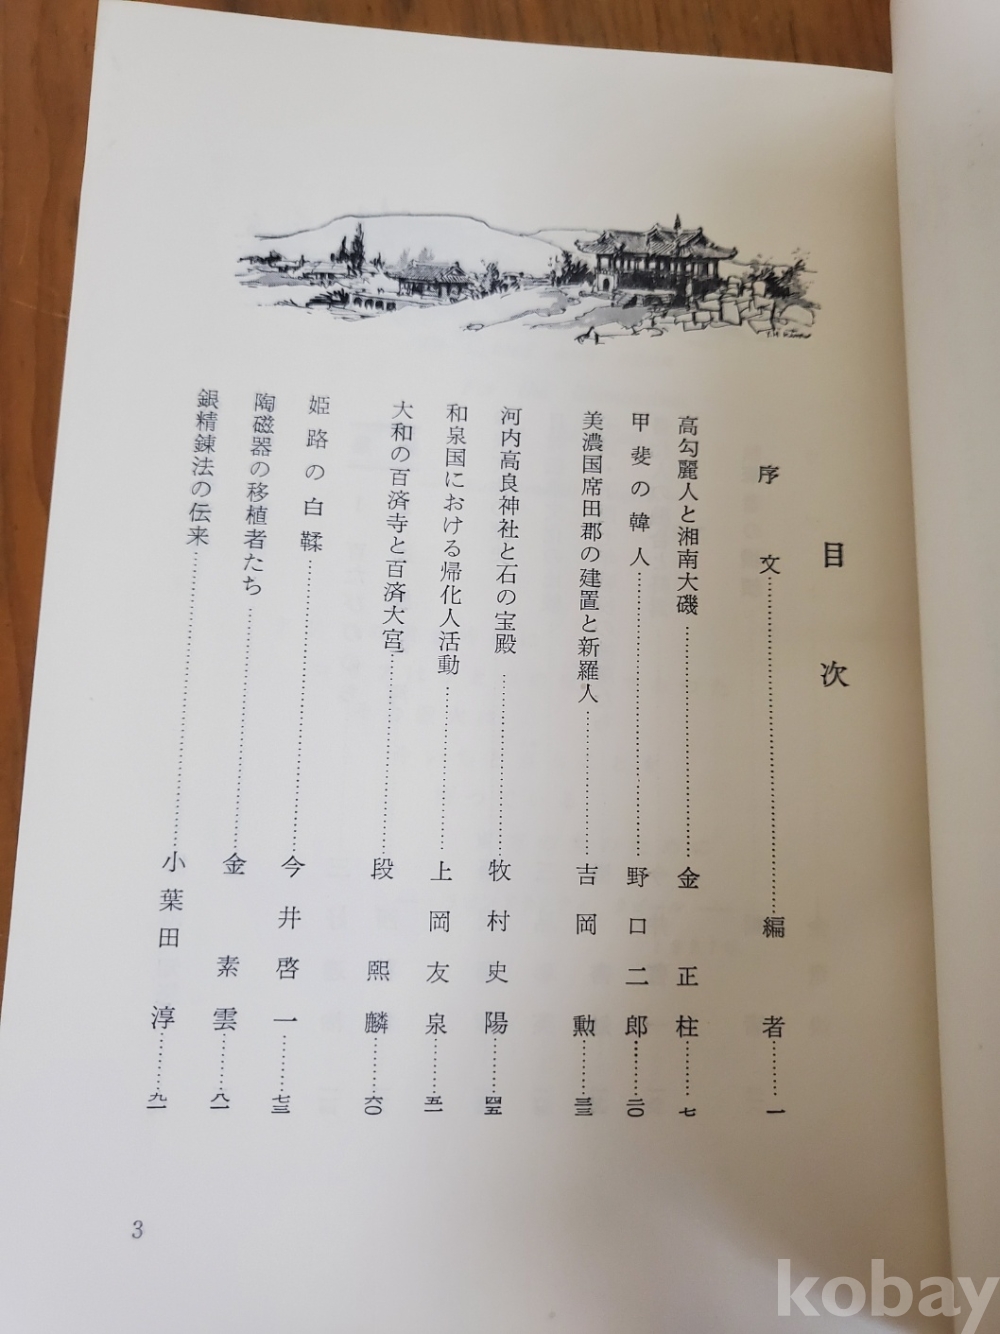 目次
序文……編者……一
高勾麗人と湘南大磯……金正柱……七
甲斐の韓人……野口二郎……二〇
美濃国席田郡の建置と新羅人……吉岡勲……三三
河内高良神社と石の宝殿……牧村史陽……四五
和泉国における帰化人活動……上岡友泉……五一
大和の百済寺と百済大宮……段熙麟……六〇
姫路の白鞣……今井啓一……七三
陶磁器の移植者たち……金素雲……八一
銀精錬法の伝来……小葉田淳……九一
3
kobay